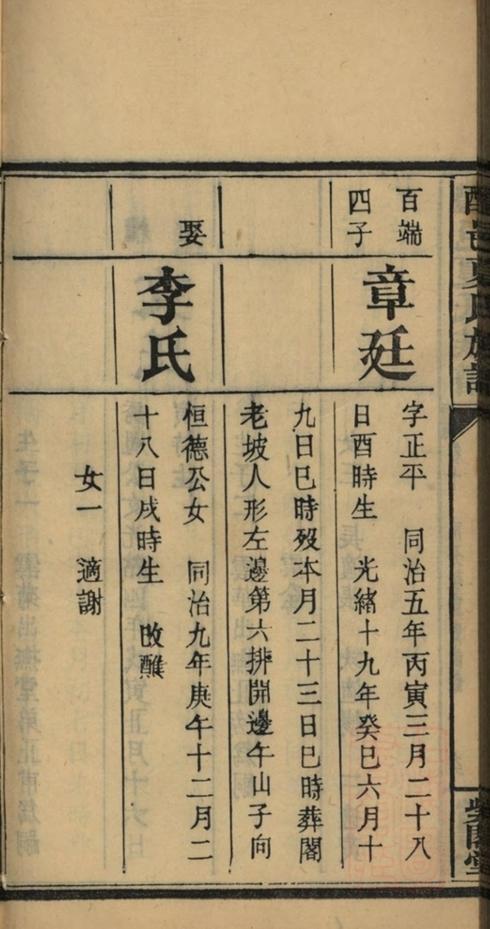 夏氏族譜
百端
四子
章廷
字正平　同治五年丙寅三月二十八
日酉時生　光緒十九年癸巳六月十
九日巳時歿本月二十三日巳時葬閣
老坡人形左邊第六排開邊午山子向
娶
李氏
恒德公女　同治九年庚午十二月二
十八日戌時生　改醮
女一　適謝